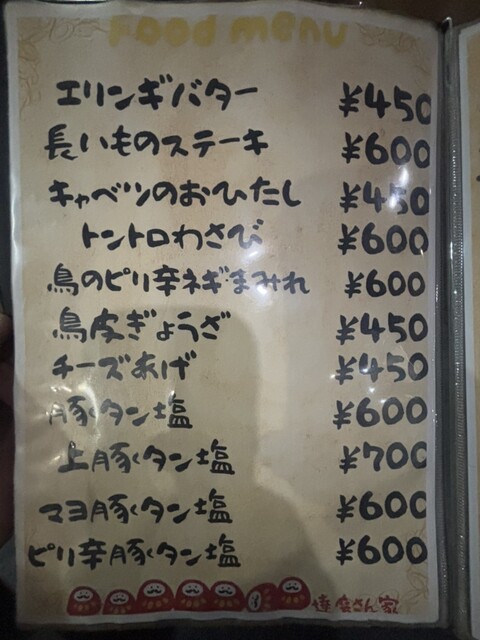 Food menu
エリンギバター ¥450
長いものステーキ ¥600
キャベツのおひたし ¥450
トントロわさび ¥600
鳥のピリ辛ネギまみれ ¥600
鳥皮ぎょうざ ¥450
チーズあげ ¥450
豚タン塩 ¥600
上豚タン塩 ¥700
マヨ豚タン塩 ¥600
ピリ辛豚タン塩 ¥600
達磨さん家